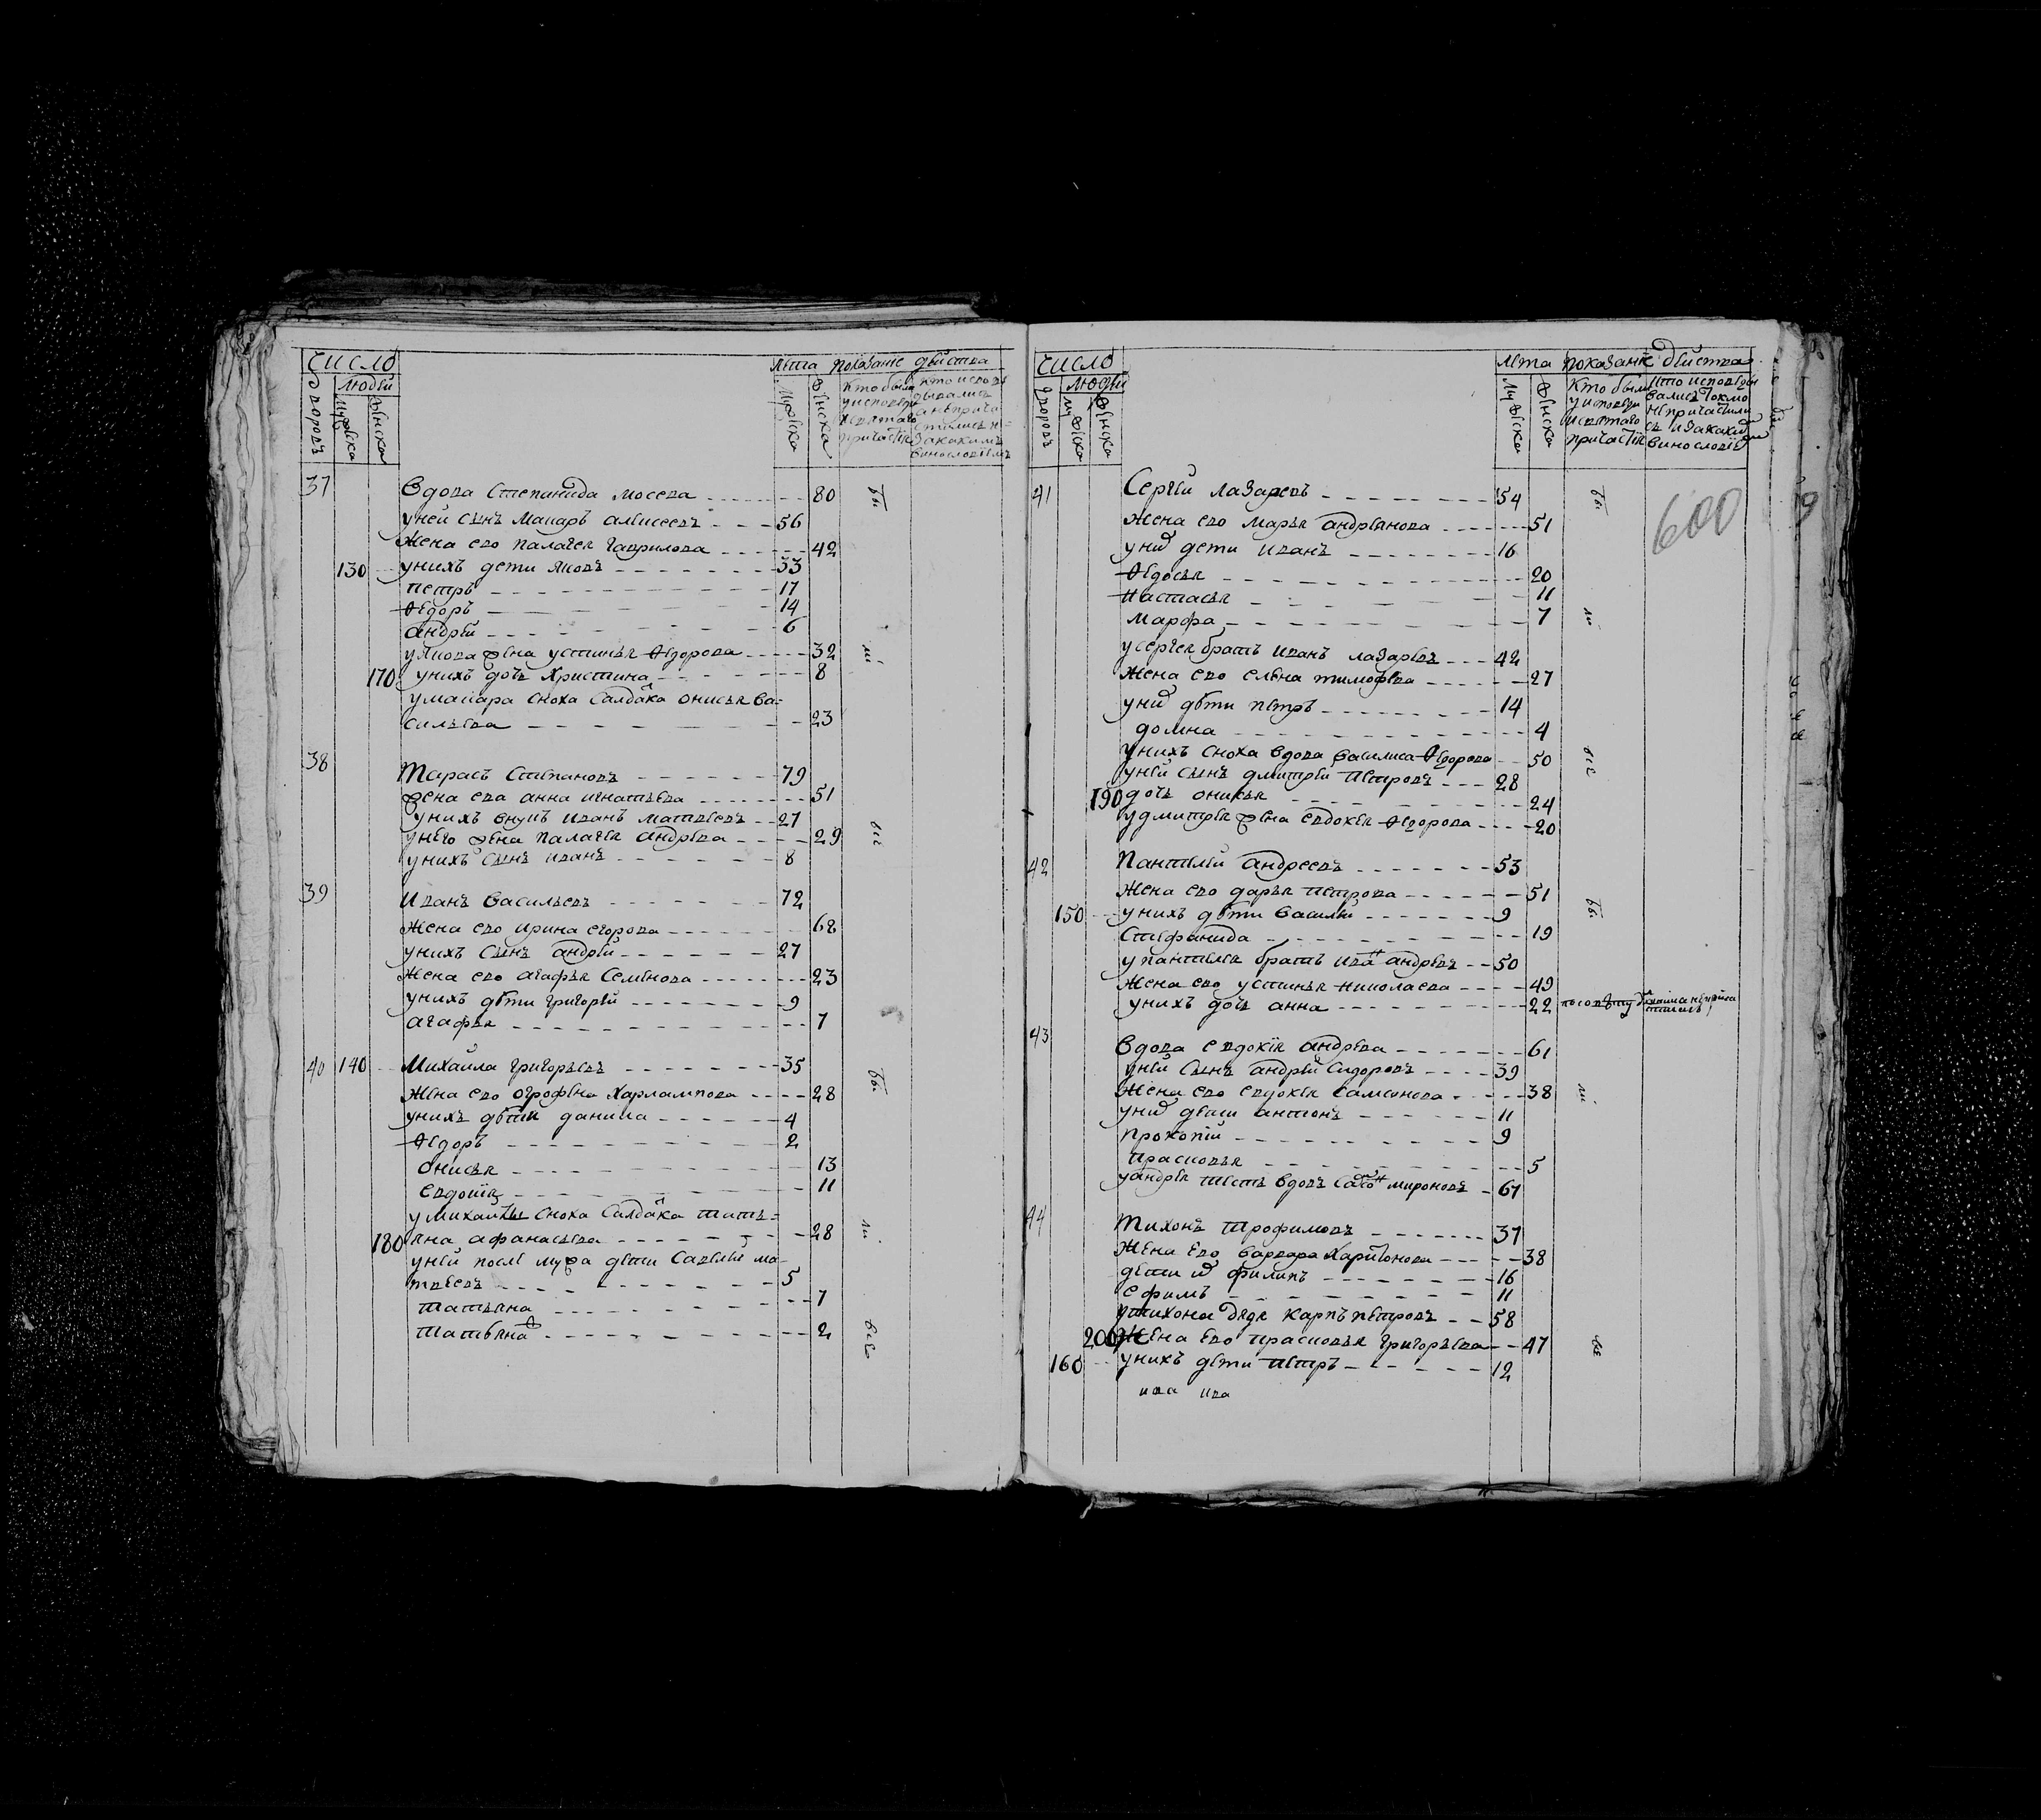 число
людей
дворовъ
мужска
женска
лѣта показание действа
мужска
женска
кто были
уисповеди
исвятаго
причастiя
кто исповѣ
дывались
а непричас
тились и
закакимъ
винословiемъ
37 Вдова Степанида Мосева 80
уней сынъ Макаръ алексеевъ 56
Жена ево палагея гаврилова 42
130 унихъ дети яковъ 33
петръ 17
Ѳедоръ 14
андрей 6
уякова жена устинья Ѳедорова 32
170 унихъ дочь Христина 8
умакара сноха Салдатка онисья ва=
сильева 23
38 Тарасъ Степановъ 79
жена ева анна игнатьева 51
унихъ внукъ иванъ матвеевъ 27
унего жена палагея андрева 29
унихъ сынъ иванъ 8
39 Иванъ Васильевъ 72
Жена ево ирина егорова 68
унихъ сынъ андрей 27
Жена ево агафья Семенова 23
унихъ дѣти григорей 9
агафья 7
40 140 Михаила григорьевъ 35
Жена ево огрофена Харлампова 28
унихъ дѣти данила 4
Ѳедоръ 2
онисья 13
евдокия 11
умихайлы сноха Салдатка татъ=
180 яна афанасьева 28
уней после мужа дети Савелей ма
твеевъ 5
татьяна 7
татьяна 2
бы
ли
все
бы
ли
все
число
людей
дворовъ
мужска
женска
лѣта показание действа
мужска
женска
кто были
уисповеди
исвятаго
причастiя
кто исповеды
вались токмо
непричастили
сь изакаким
винословiем
600
41 Сергей лазаревъ 54
Жена ево марья андреянова 51
уних дети иванъ 16
Ѳедосья 20
Настасья 11
марфа 7
усергея братъ иванъ лазаревъ 42
Жена ево елена тимофева 27
уних дѣти петръ 14
домна 4
унихъ сноха вдова василиса Ѳедорова 50
уней сынъ дмитрей петровъ 28
190 дочь онисья 24
удмитрея жена евдокея Ѳедорова 20
42 Пантелей андреевъ 53
Жена ево дарья петрова 51
150 унихъ дѣти василей 9
Стефанида 19
упантелея братъ иван андревъ 50
Жена ево устинья николаева 49
унихъ дочь анна 22
43 Вдова евдокiя андрева 61
уней сынъ андрей Сидоровъ 39
Жена ево евдокея самсонова 38
уних дети антонъ 11
прокопiй 9
прасковья 5
уандрея тесть вдовъ мироновъ 67
44 Тихонъ трофимовъ 37
Жена ево варвара Харитонова 38
дети их филипъ 16
ефимъ 11
утихона дядя карпъ петровъ 58
200 Жена ево прасковья григорьева 47
160 унихъ дети петръ 12
ива ива
бы
ли
все
бы
ли
все